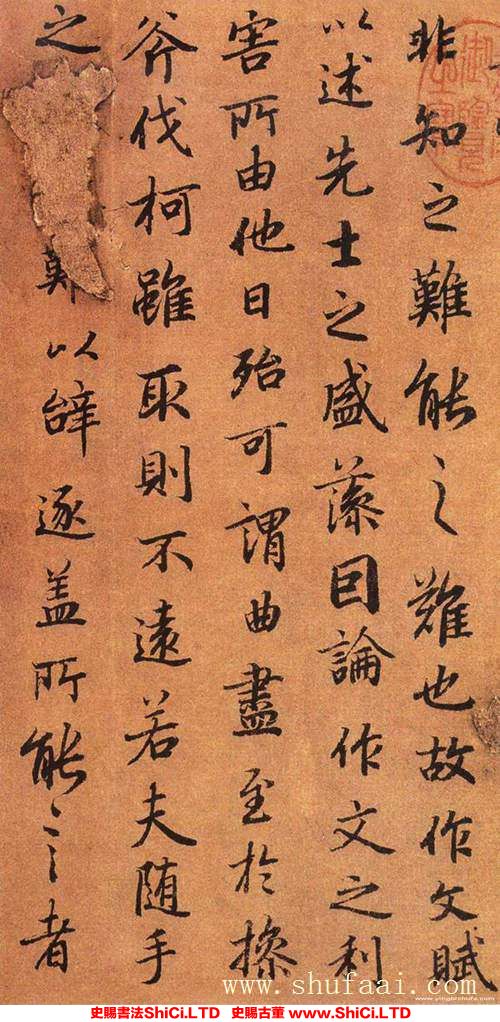 非知之難能之難也故作文賦
以述先士之盛藻因論作文之利
害所由他日殆可謂曲盡至於操
斧伐柯雖取則不遠若夫随手
之難以辝逐盖所能之者
www.shufaai.com
www.yingbishufa.com
史賜書法ShiCi.LTD 史賜古董 www.ShiCi.LTD